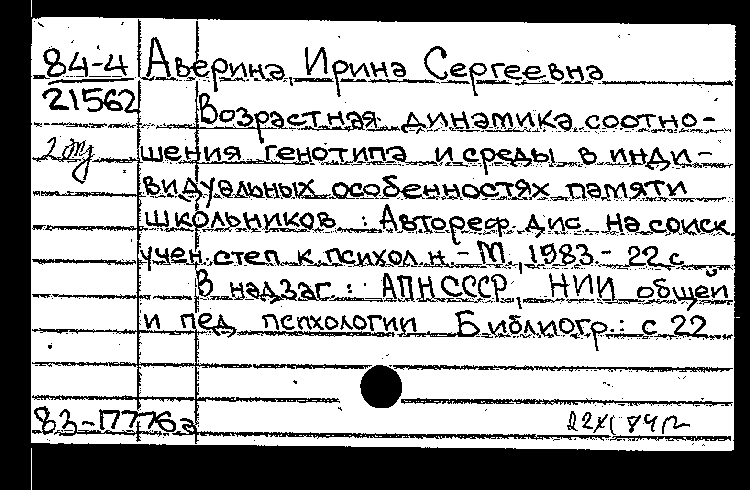 84-4 Аверина, Ирина Сергеевна
21562 Возрастная динамика соотно-
шения генотипа и среды в инди-
видуальных особенностях памяти
школьников : Автореф. дис. на соиск.
учен. степ. к. психол. н. - М., 1983. - 22 с.
В надзаг.: АПН СССР, НИИ общей
и пед. психологии. Библиогр.: с 22
83-17776а